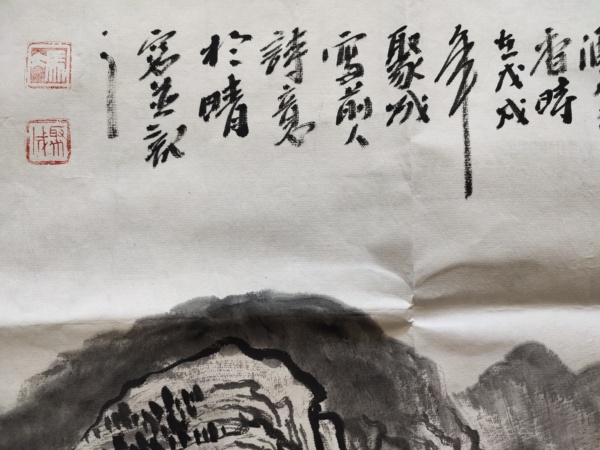 香時
在戊戌
年
聚成
寫前人
詩意
於晴
窗並